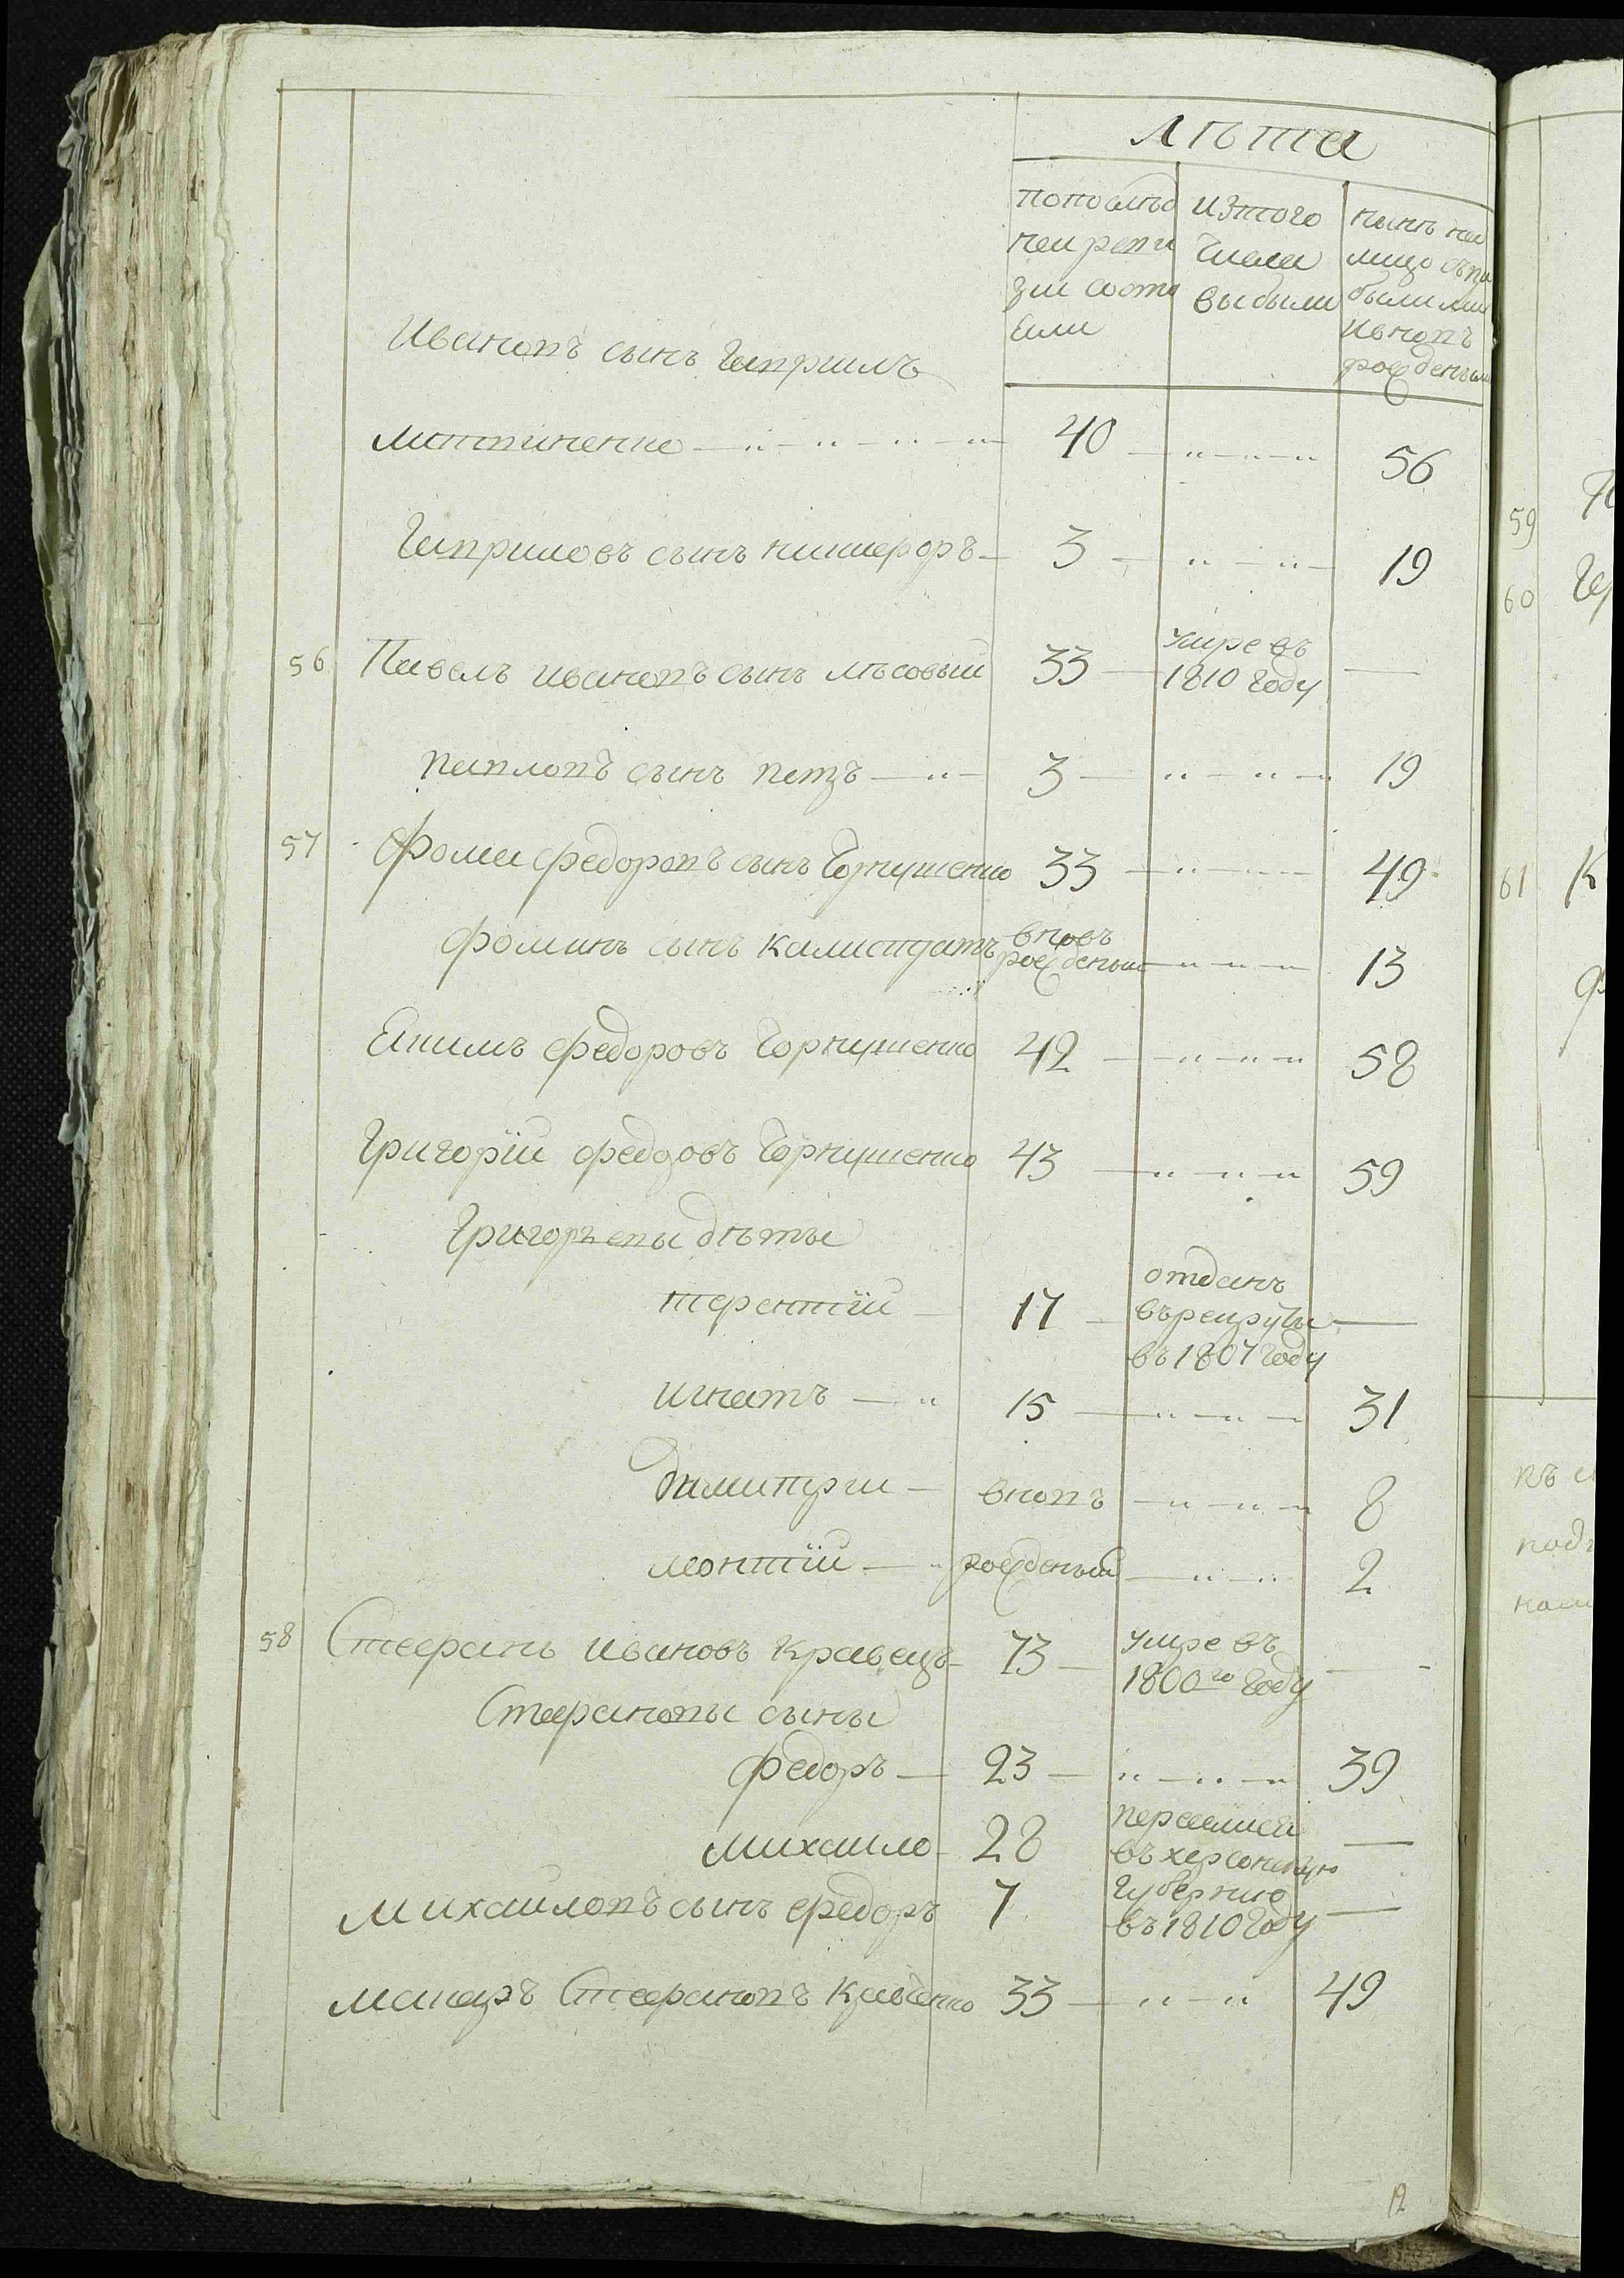 лѣта
по послѣд
ней реви
зіи состо
яли
изтого
числа
выбыли
нынѣ на
лицо съпри
былыми
ивновъ
рожденными
Ивановъ сынъ Гаврилъ
Литвиненко 40 56
Гавриловъ сынъ никифоръ 3 19
56 Павелъ Ивановъ сынъ лѣсовый 33 умре въ
1810 году
павловъ сынъ петръ 3 19
57 Фома федоровъ сынъ Горкушенко 33 49
фоминъ сынъ Калистратъ вновь
рожденный 13
Екимъ федоровъ Горкушенко 42 58
Григорїй федоровъ Горкушенко 43 59
Григорьевы дѣти
терентїй 17 отданъ
върекруты
въ 1807 году
игнатъ 15 31
димитрги вновь 8
леонтїй рожденный 2
58 Стефанъ Ивановъ Кравецъ 73 умре въ
1800го году
Стефановы сыны
федоръ 23 39
михаило 28 перешли
въ херсонскую
Михаиловъ сынъ федоръ 7 губернию
въ 1810 году
макаръ Стефановъ Кравченко 33 49
12
59
60
61